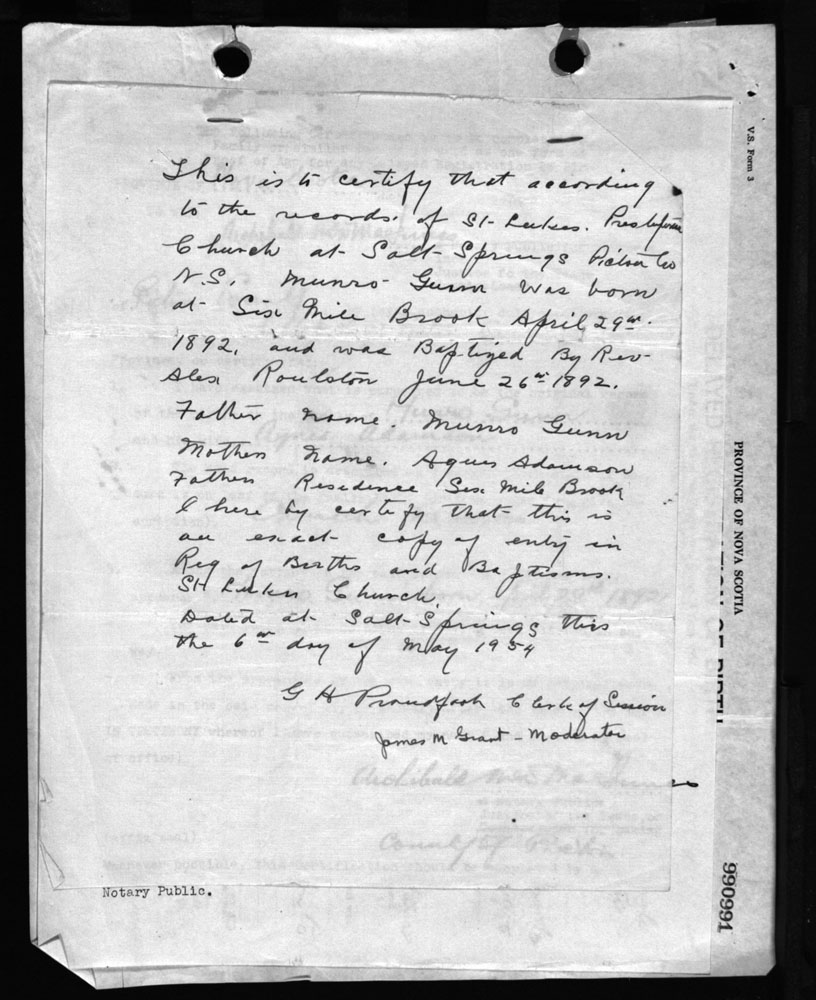 This is to certify that according
to the records of St Lukes. Presbyterian
Church at Salt-Springs Pictou Co
N.S. Munro Gunn was born
at Six Mile Brook April 29th
1892, and was Baptized By Rev
Alex Roulston June 26th 1892.
Father name. Munro Gunn
Mothers Name. Agnes Adamson
Fathers Residence Six Mile Brook
I here by certify that this is
an exact copy of entry in
Reg of Births and Baptisms.
St Lukes Church
Dated at Salt-Springs this
the 6th day of May 1954
G H Proudfoot Clerk of Session
James M Grant - Moderator
Notary Public.
V.S. Form 3
PROVINCE OF NOVA SCOTIA
OF BIRTH
990991